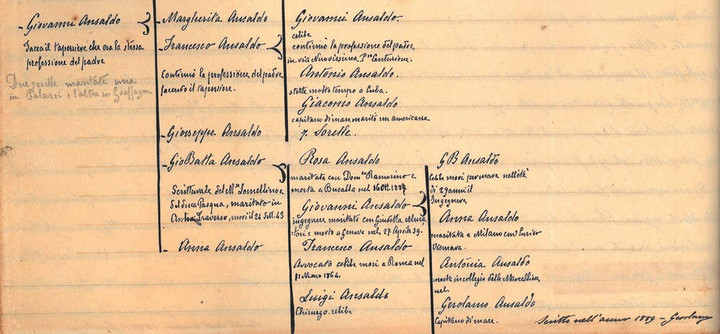 - Giovanni Ansaldo
faceva il tapeziere che era la stessa
professione del padre
Due sorelle maritate una
in Patarri e l'altra in Graffagni
- Margherita Ansaldo
- Francesco Ansaldo
Continuò la professione del padre
facendo il tapeziere.
- Giuseppe Ansaldo
- Gio Batta Ansaldo
Scritturale del M.se Lomellino
maritato in
Traverso, morì il 24 Sett. 63
- Anna Ansaldo
Giovanni Ansaldo
celibe
continuò la professione del padre
in via Nuovissima, P.zza Centurione.
Antonio Ansaldo.
stette molto tempo a Cuba.
Giacomo Ansaldo
capitano di mare maritò un americana.
7. Sorelle.
Rosa Ansaldo
maritata con Dom.co Ramorino e
morta a Busalla nel 16 Ott. 1887
Giovanni Ansaldo
ingegnere maritato con Giulietta
e morto a Genova nel 27 Agosto 59.
Francesco Ansaldo
Avvocato celibe morì a Roma nel
Marzo 1862.
Luigi Ansaldo
Chirurgo. celibe
G B Ansaldo
celibe morì per mare nell'età
di 29 anni il
Ingegnere
Anna Ansaldo
maritata a Milano con Enrico
Antonia Ansaldo
morta in collegio delle Marcelline
nel.
Gerolamo Ansaldo
Capitano di mare.
Scritto nell'anno 1889 - Gerolamo